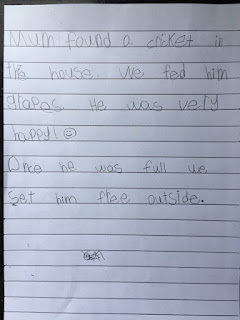 Mum found a cricket in
the house. We fed him
grapes. He was very
happy! ☺
Once he was full we
Set him free outside.